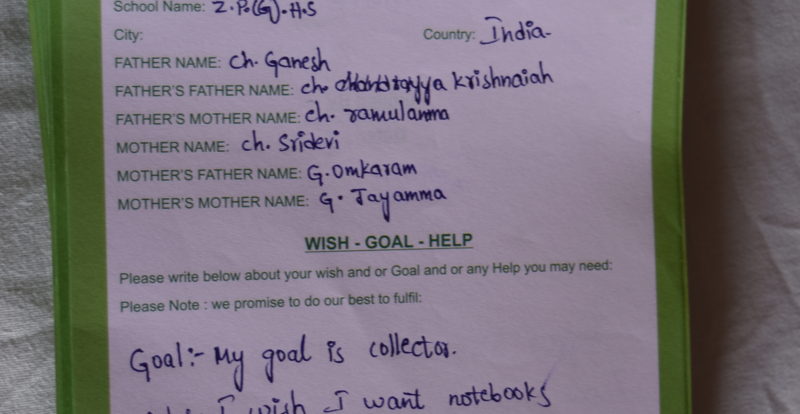 School Name: Z.P.(G).H.S
City: Country: India
FATHER NAME: ch. Ganesh
FATHER'S FATHER NAME: ch. Krishnaiah
FATHER'S MOTHER NAME: ch. ramulamma
MOTHER NAME: ch. Sridevi
MOTHER'S FATHER NAME: G. Omkaram
MOTHER'S MOTHER NAME: G. Jayamma
WISH - GOAL - HELP
Please write below about your wish and or Goal and or any Help you may need:
Please Note : we promise to do our best to fulfil:
Goal:- My goal is collector.
I wish I want notebooks